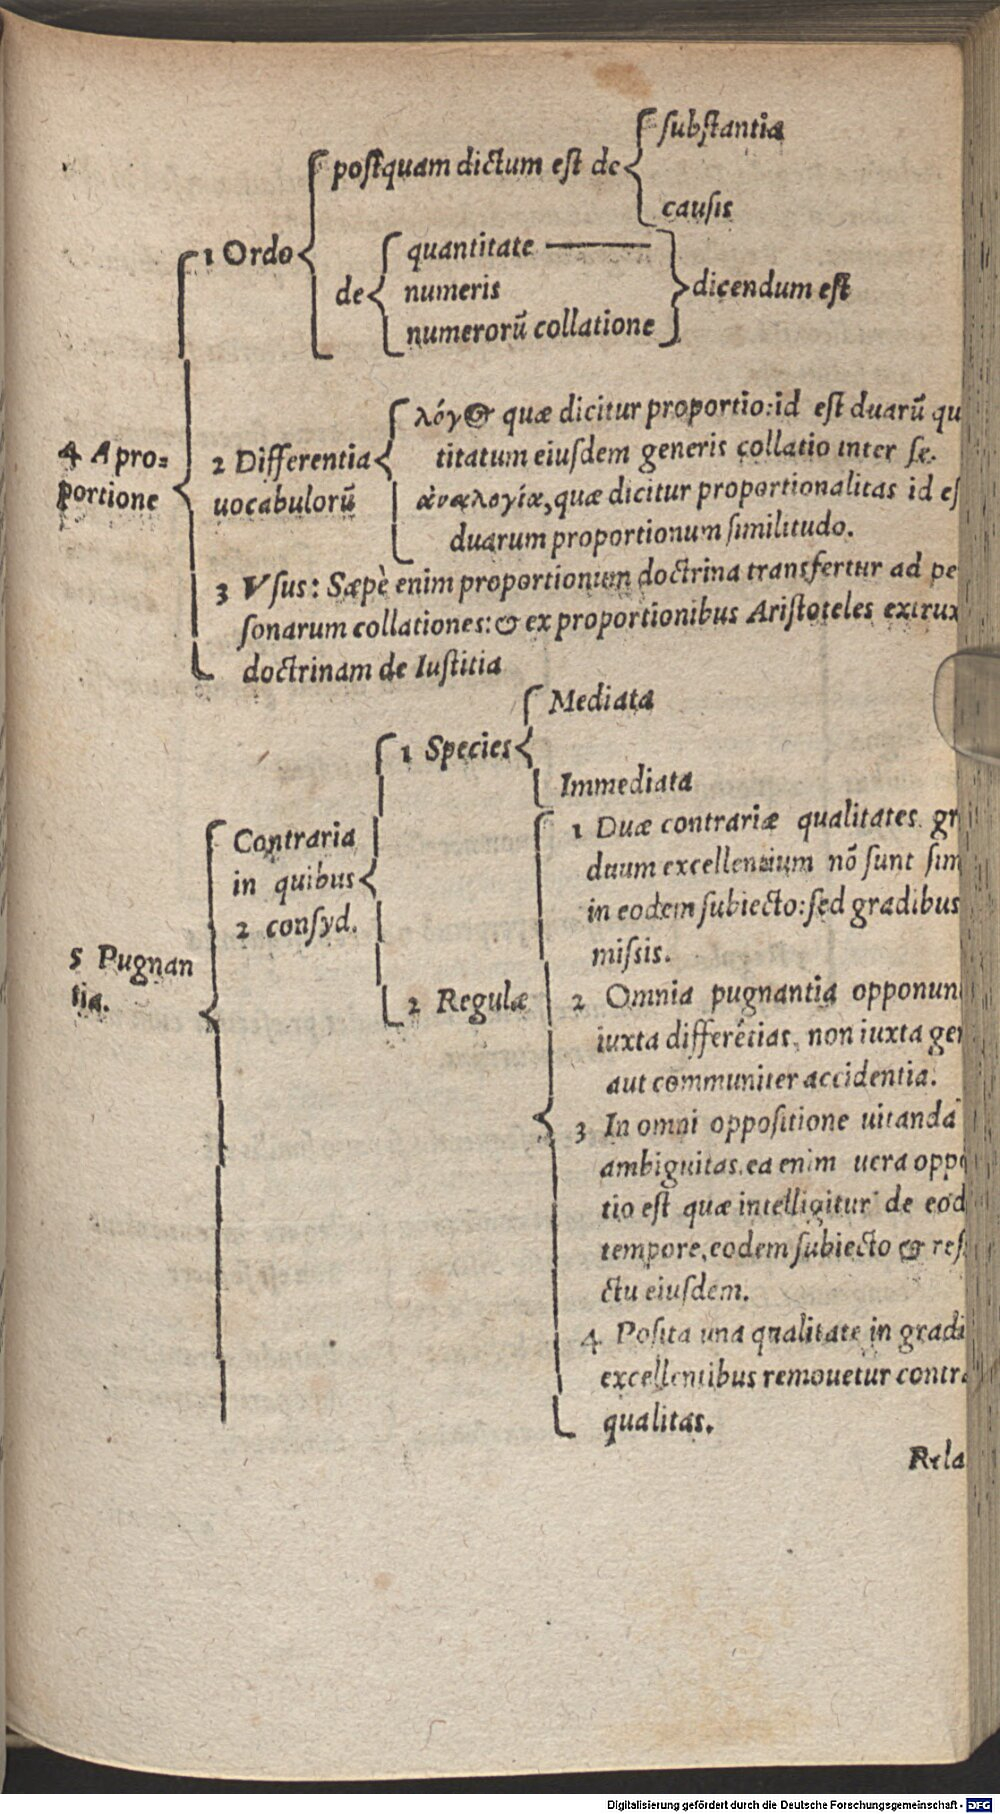 substantia
postquam dictum est de
causis
1 Ordo
quantitate
de
numeris
dicendum est
numerorũ collatione
4 A pro-
portione
2 Differentia
uocabulorũ
λόγ&ος quæ dicitur proportio: id est duarũ qu
titatum eiusdem generis collatio inter se.
ἀναλογία, quæ dicitur proportionalitas id es
duarum proportionum similitudo.
3 Vsus: Sæpè enim proportionum doctrina transfertur ad pe
sonarum collationes: & ex proportionibus Aristoteles extrux
doctrinam de Iustitia
Mediata
1 Species
Immediata
Contraria
in quibus
2 consyd.
5 Pugnan
tia.
2 Regulæ
1 Duæ contrariæ qualitates gr
duum excellentium nõ sunt sim
in eodem subiecto: sed gradibus
missis.
2 Omnia pugnantia opponun
iuxta differẽtias, non iuxta gen
aut communiter accidentia.
3 In omni oppositione uitanda
ambiguitas, ea enim uera oppo
tio est quæ intelligitur de eod
tempore, eodem subiecto & res
ctu eiusdem.
4 Posita una qualitate in gradi
excellentibus remouetur contra
qualitas.
Rela
Digitalisierung gefördert durch die Deutsche Forschungsgemeinschaft - DFG